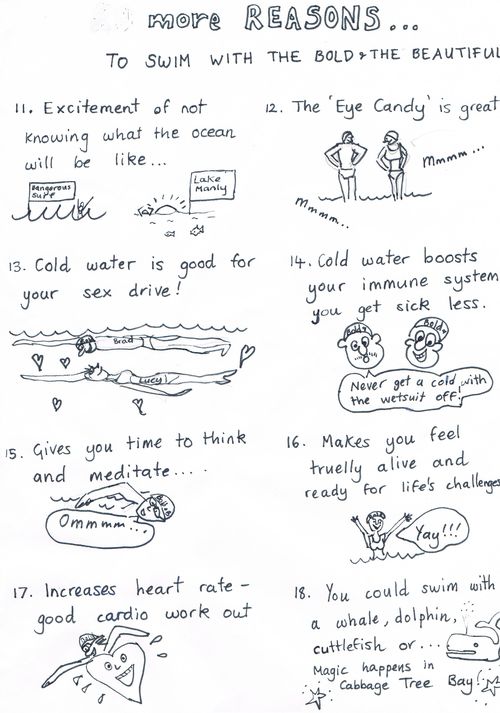 more REASONS...
TO SWIM WITH THE BOLD & THE BEAUTIFUL
11. Excitement of not
knowing what the ocean
will be like...
Dangerous
Surf
Lake
Manly
12. The 'Eye Candy' is great
Mmmm...
Mmmm...
13. Cold water is good for
your sex drive!
Brad
Lucy
14. Cold water boosts
your immune system
you get sick less.
Bold
Bold
Never get a cold with
the wetsuit off!
15. Gives you time to think
and meditate....
Ommmm...
16. Makes you feel
truelly alive and
ready for life's challenges
Yay!!!
17. Increases heart rate -
good cardio work out
18. You could swim with
a whale, dolphin,
cuttlefish or...
Magic happens in
Cabbage Tree Bay!